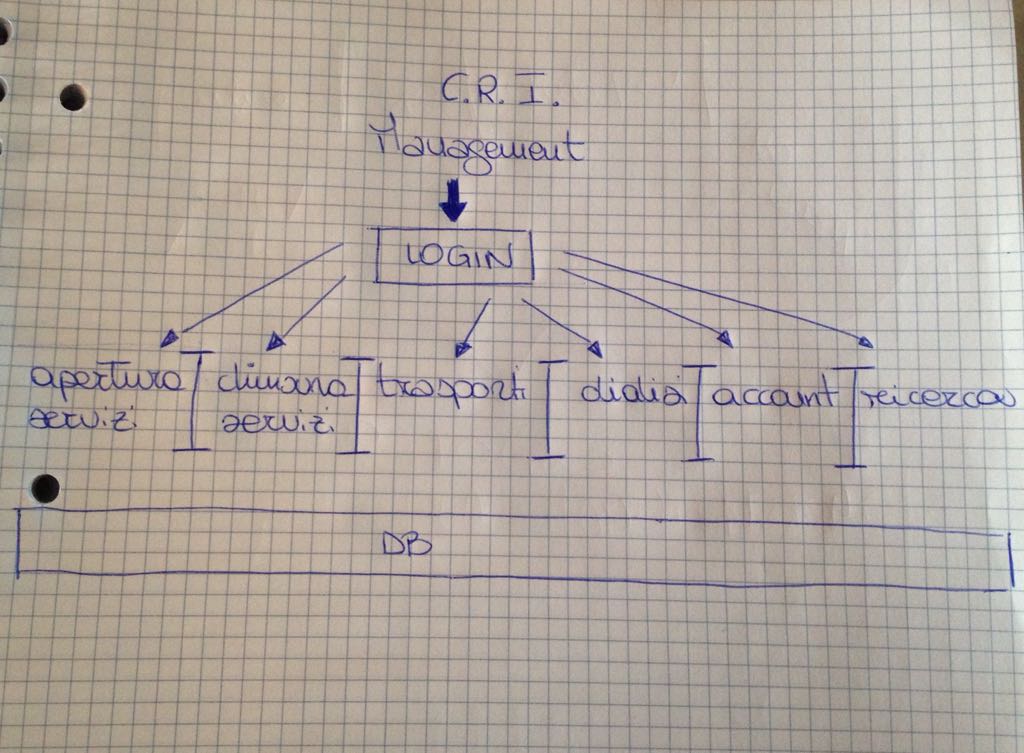 C.R.I.
Management
LOGIN
apertura
servizi
servizi
trasporti
dialisi
account
reicerca
DB